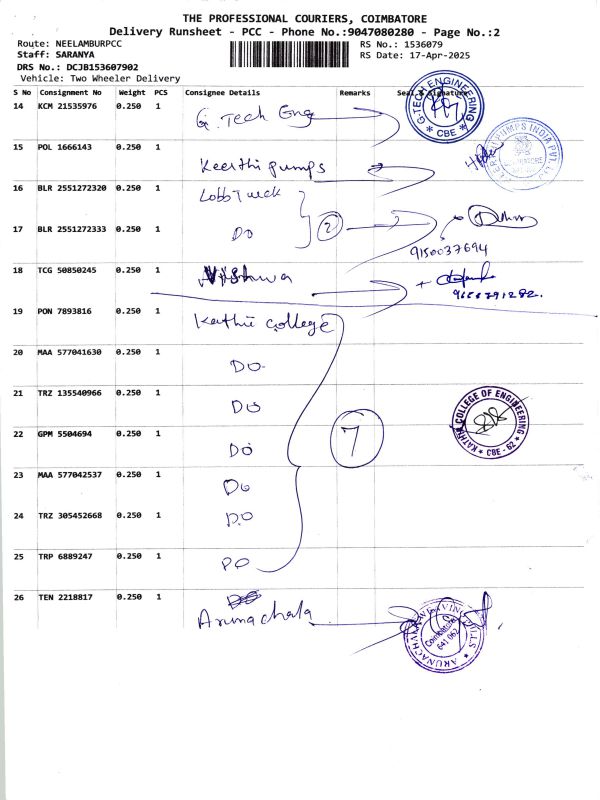 THE PROFESSIONAL COURIERS, COIMBATORE
Delivery Runsheet - PCC - Phone No.:9047080280 - Page No.:2
Route: NEELAMBURPCC
Staff: SARANYA
DRS No.: DCJB153607902
Vehicle: Two Wheeler Delivery
RS No.: 1536079
RS Date: 17-Apr-2025
S No Consignment No Weight PCS Consignee Details Remarks Seal & Signature
14 KCM 21535976 0.250 1 G. Tech Eng
G.TECH ENGINEERING * CBE *
15 POL 1666143 0.250 1 Keerthi pumps
PUMPS INDIA PVT. LTD
16 BLR 2551272320 0.250 1 Lobb Tuck
17 BLR 2551272333 0.250 1 DO
2
9150037694
18 TCG 50850245 0.250 1 Vishwa
9656791282.
19 PON 7893816 0.250 1 Kathir college
20 MAA 577041630 0.250 1 DO
21 TRZ 135540966 0.250 1 DO
22 GPM 5504694 0.250 1 DO
7
KATHIR COLLEGE OF ENGINEERING * CBE - 62 *
23 MAA 577042537 0.250 1 DO
24 TRZ 305452668 0.250 1 DO
25 TRP 6889247 0.250 1 DO
26 TEN 2218817 0.250 1 Arunachala
ARUNACHALA WEAVING MILLS
Coimbatore
641 062